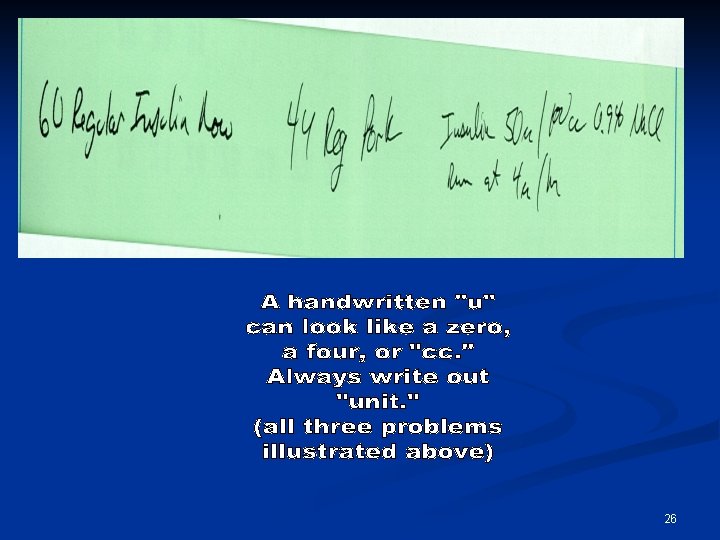 6U Regular Insulin Now
4U Reg Pork
Insulin 50u/100cc 0.9% NaCl
Run at 4u/hr
A handwritten "u"
can look like a zero,
a four, or "cc."
Always write out
"unit."
(all three problems
illustrated above)
26